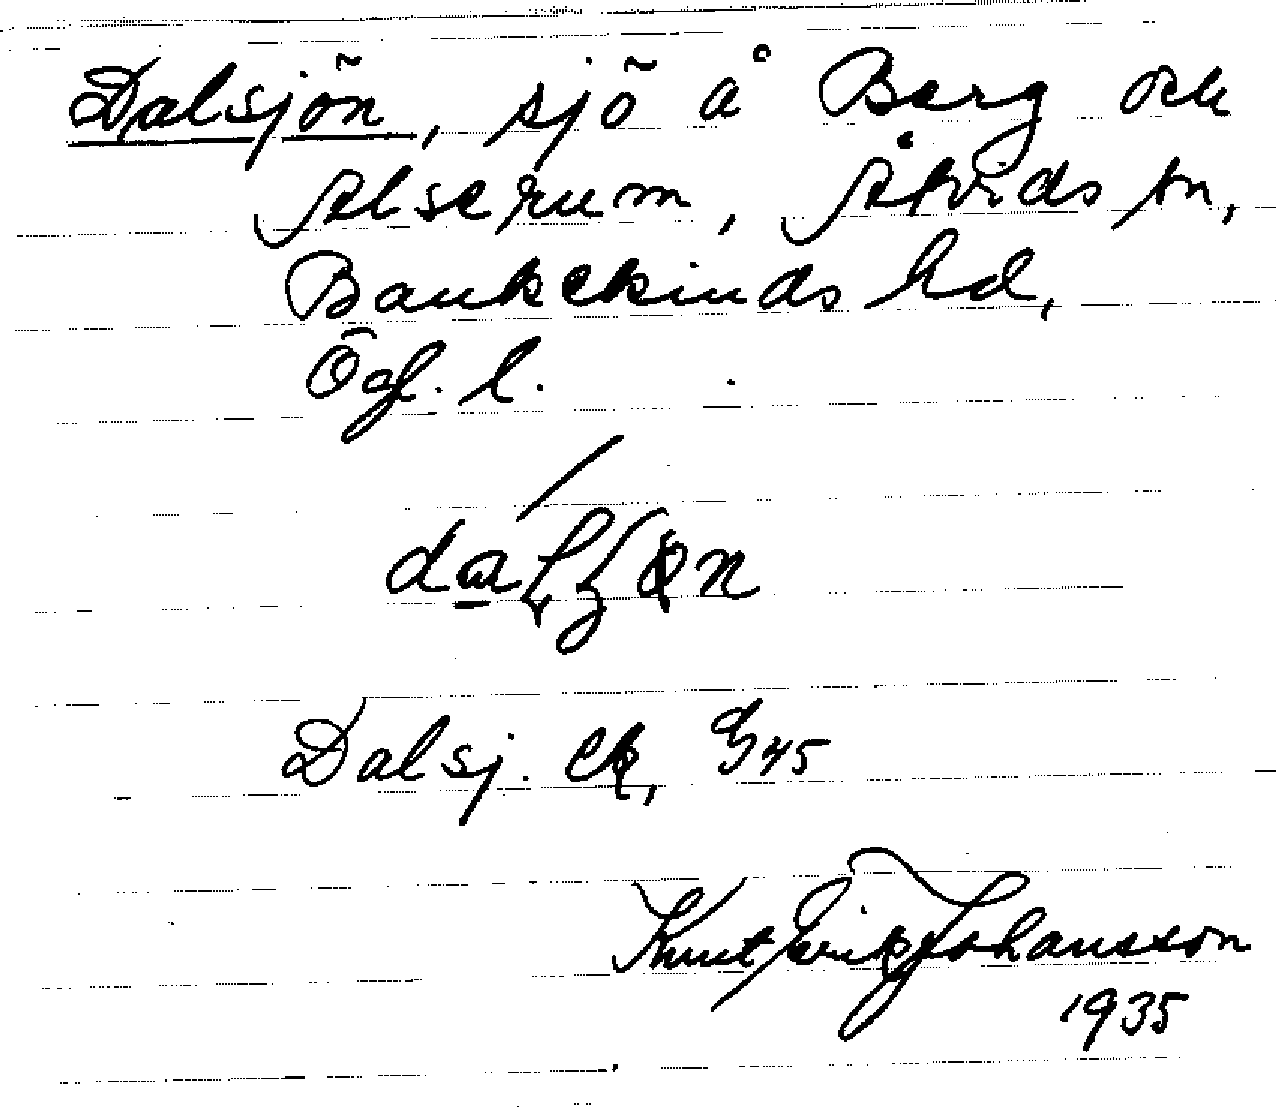 Dalsjön, sjö å Berg och
Alserum, Åtvids sn,
Bankekinds hd,
Ögl. l.
Dalsj. ek, G 45
Knut Erik Johansson
1935